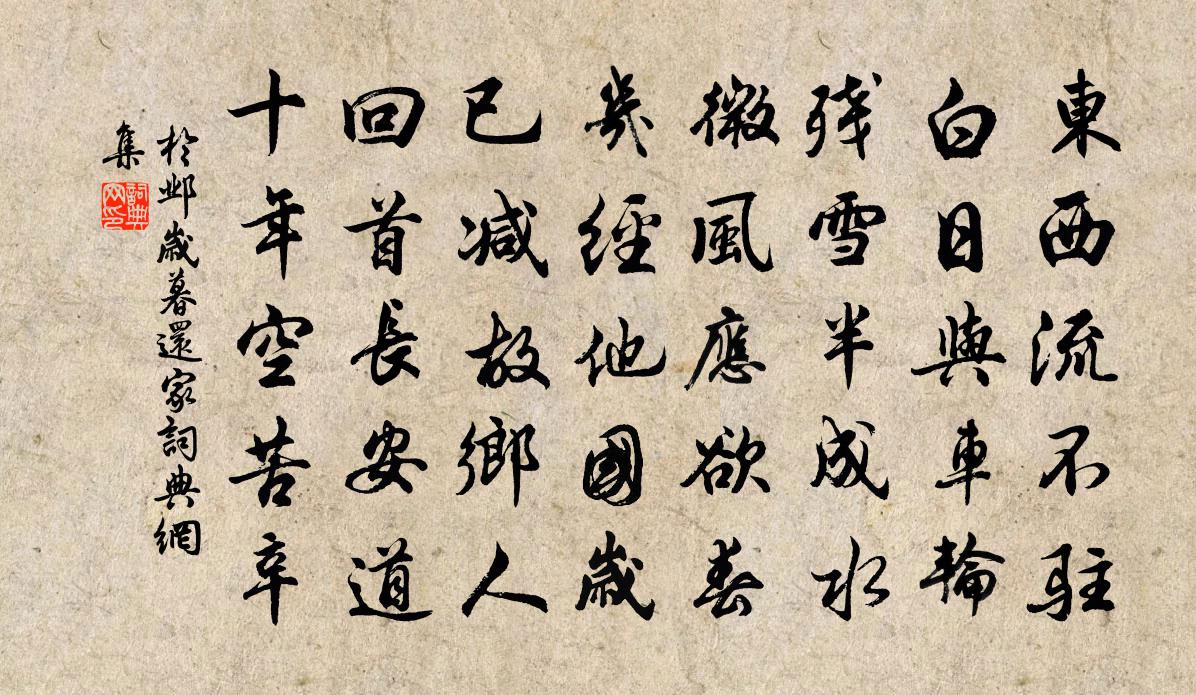 東西流不駐
白日與車輪
残雪半成水
微風應欲春
幾經他國歲
已減故鄉人
回首長安道
十年空苦辛
於鄴歲暮還家詞典網
集
詞典
网印